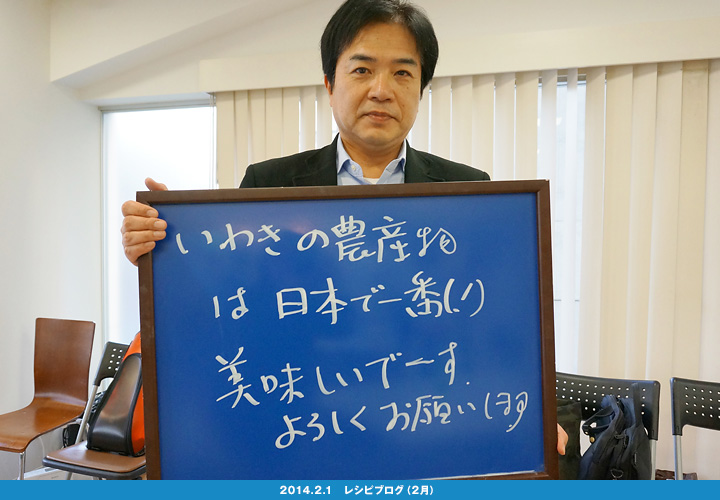 いわきの農産物
は日本で一番(!)
美味しいでーす
よろしくお願いします
2014.2.1 レシピブログ(2月)